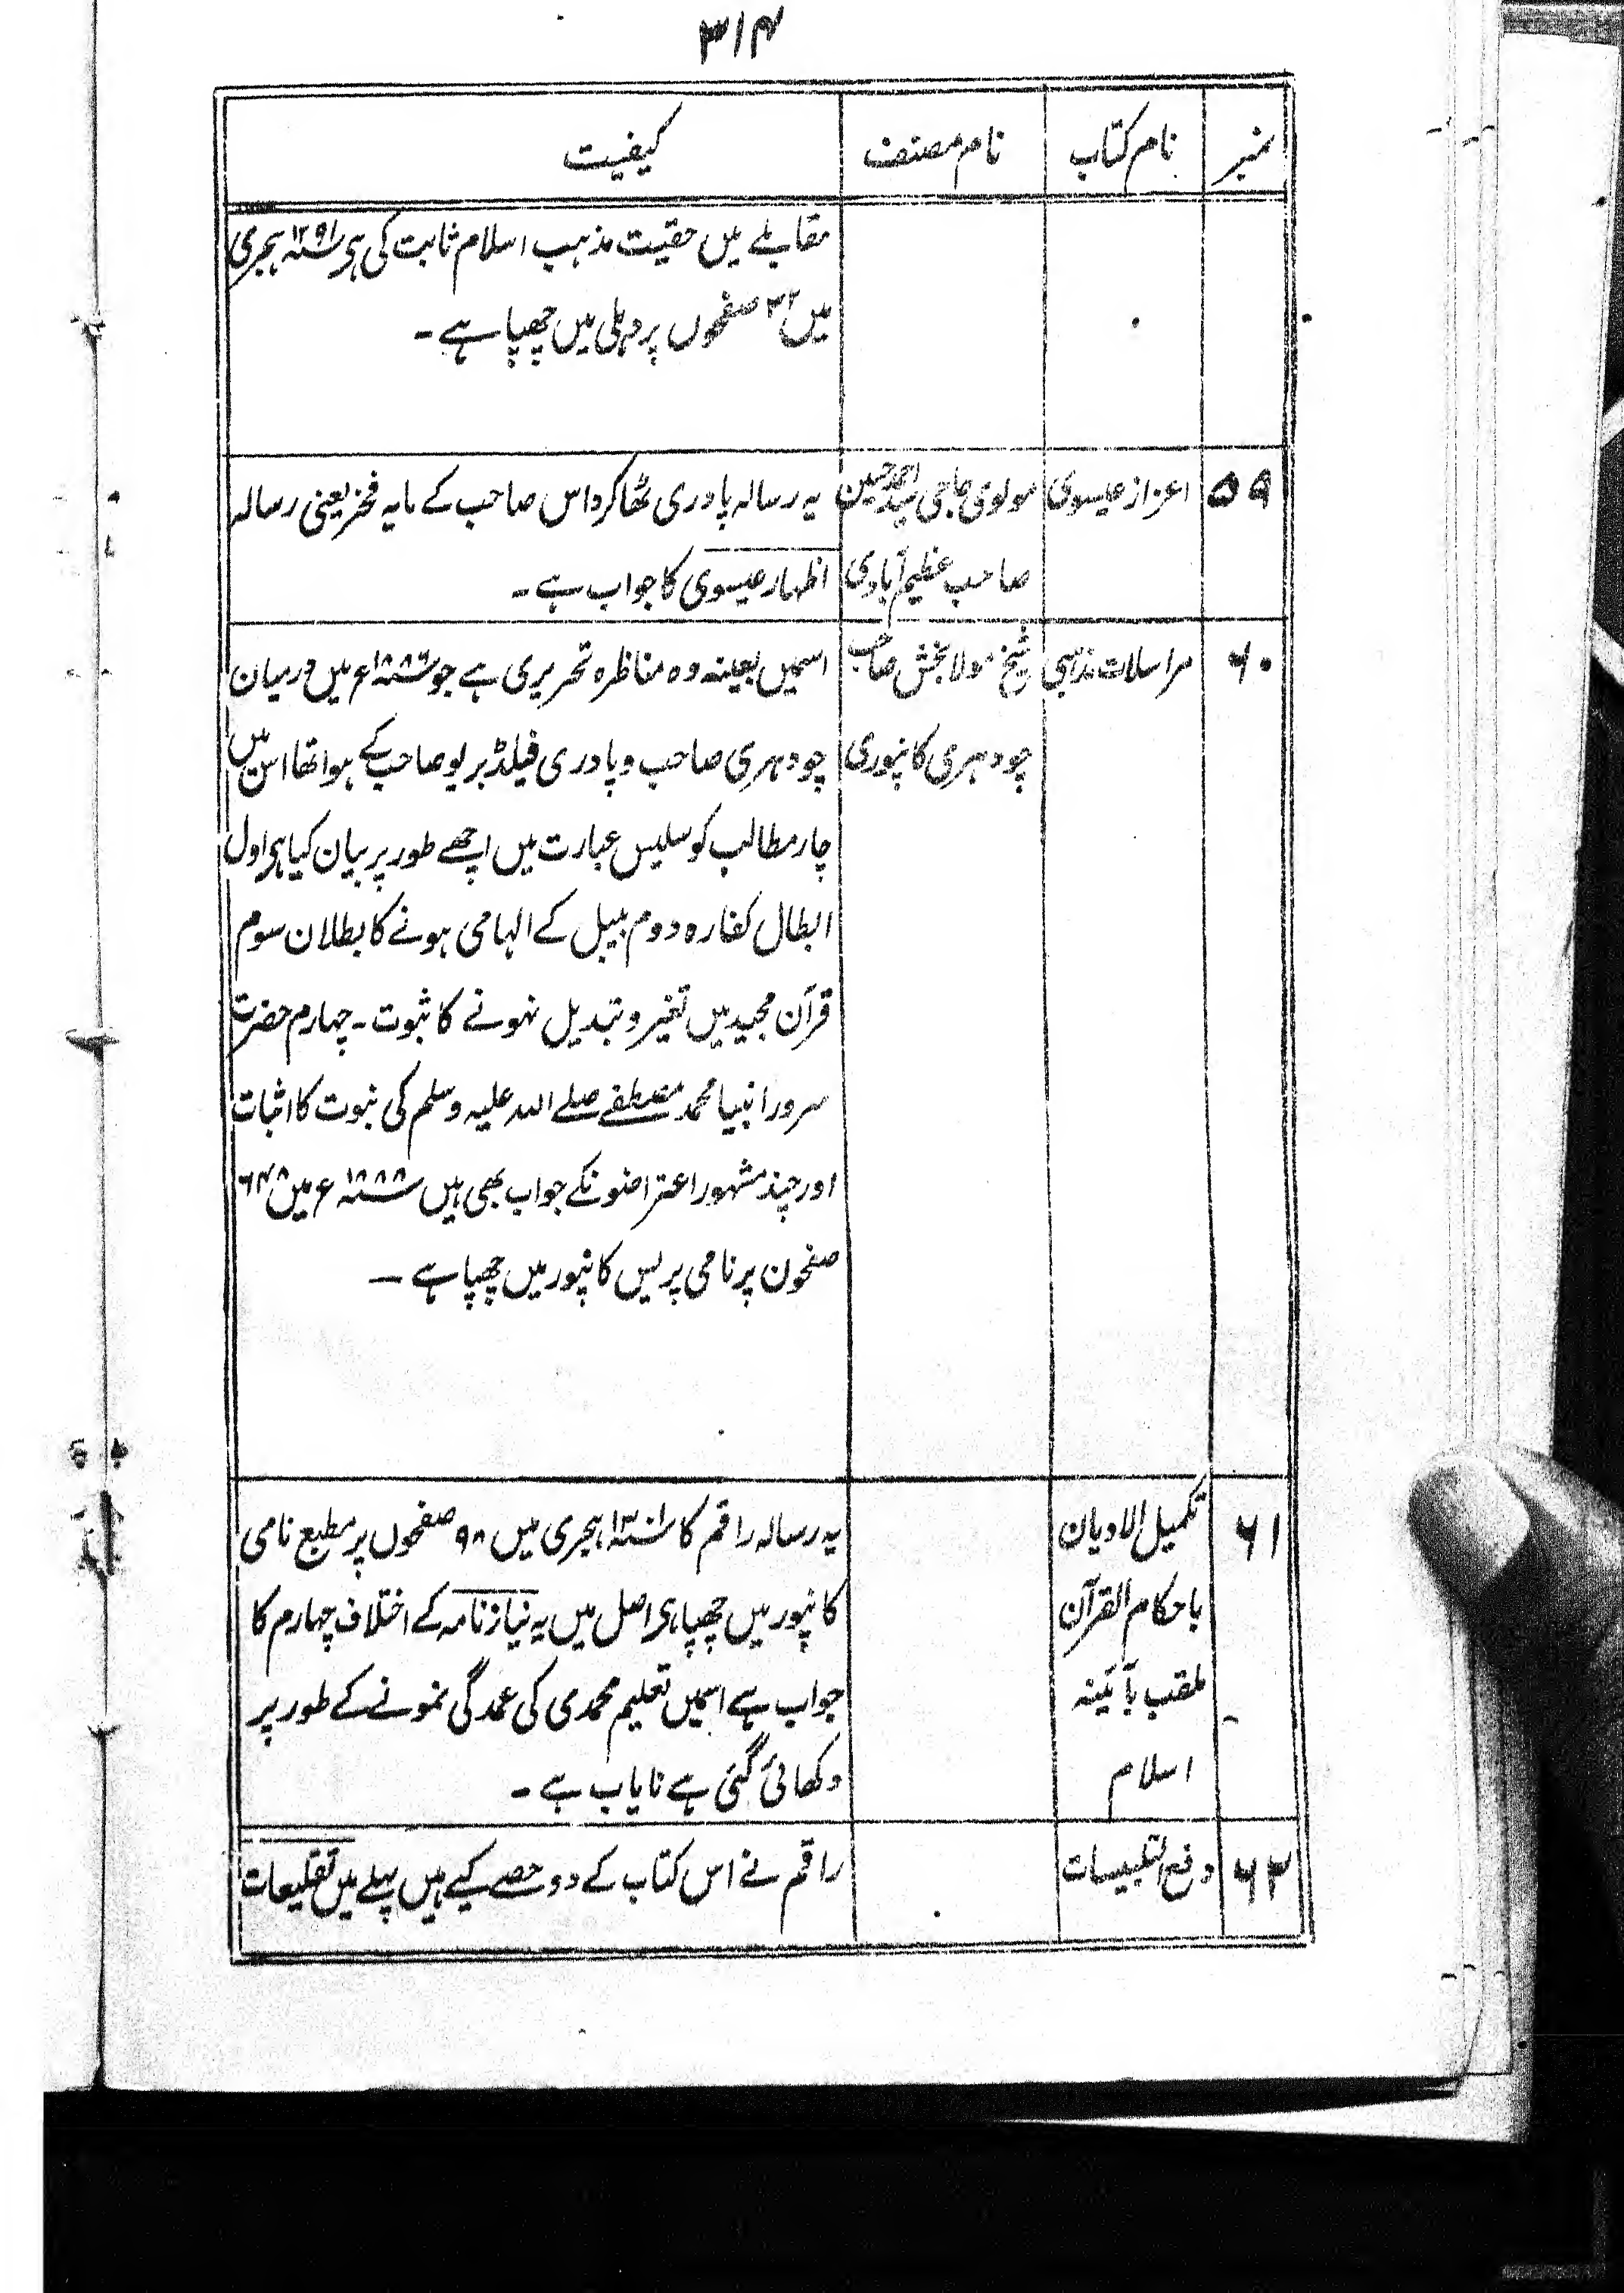 ۳۱۴
نمبر نام کتاب نام مصنف کیفیت
مقابلے میں حقیت مذہب اسلام ثابت کی ہی ۱۲۹۱ ہجری
میں ۳۲ صفحوں پر دہلی میں چھپا ہے ۔
۵۹ اعزاز عیسوی مولوی حاجی سید احمد حسین یہ رسالہ پادری ٹھاکرداس صاحب کے مایہ فخر یعنی رسالہ
صاحب عظیم آبادی اظہار عیسوی کا جواب ہے ۔
۶۰ مراسلات مذہبی شیخ مولا بخش صاحب اسمیں بعینہ وہ مناظرہ تحریری ہے جو ء میں درمیان
چودہری کانپوری چودہری صاحب و پادری فیلڈ بریو صاحب کے ہوا تھا اس میں
چار مطالب کو سلیس عبارت میں اچھے طور پر بیان کیا ہی اول
ابطال کفارہ دوم بیبل کے الہامی ہونے کا بطلان سوم
قرآن مجید میں تغیر و تبدیل نہونے کا ثبوت ۔ چہارم حضرت
سرور انبیا محمد مصطفے صلے اللہ علیہ وسلم کی نبوت کا اثبات
اور چند مشہور اعتراضونکے جواب بھی ہیں ۱۸۸۸ء میں ۶۴۸
صفحون پر نامی پریس کانپور میں چھپا ہے —
۶۱ تکمیل الادیان یہ رسالہ راقم کا ہجری میں ۹۸ صفحوں پر مطبع نامی
باحکام القرآن کانپور میں چھپا ہی اصل میں یہ نیاز نامہ کے اختلاف چہارم کا
ملقب بآئینہ جواب ہے اسمیں تعلیم محمدی کی عمدگی نمونے کے طور پر
اسلام دکھائی گئی ہے نایاب ہے ۔
۶۲ دفع التلبیسات راقم نے اس کتاب کے دو حصے کیے ہیں پہلے میں تقلیعات